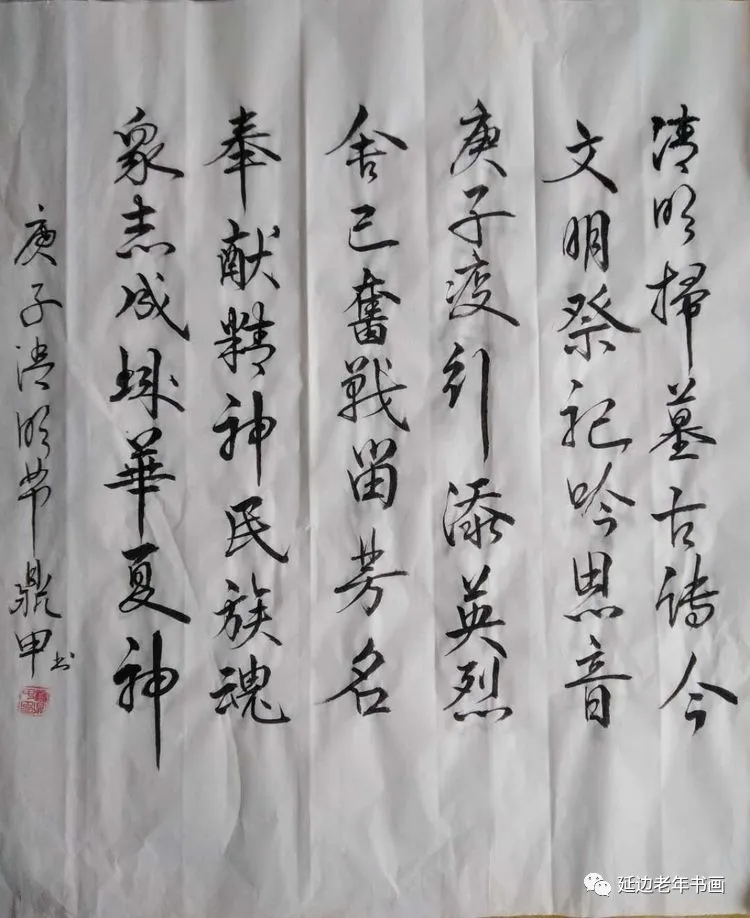 清明掃墓古傳今
文明祭祀吟思音
庚子疫添英烈
舍己奮戰留芳名
奉献精神民族魂
衆志成城華夏神
庚子清明节鼎甲书
延边老年书画